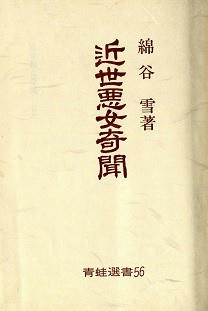 綿谷 雪著
近世悪女奇聞
青蛙選書56